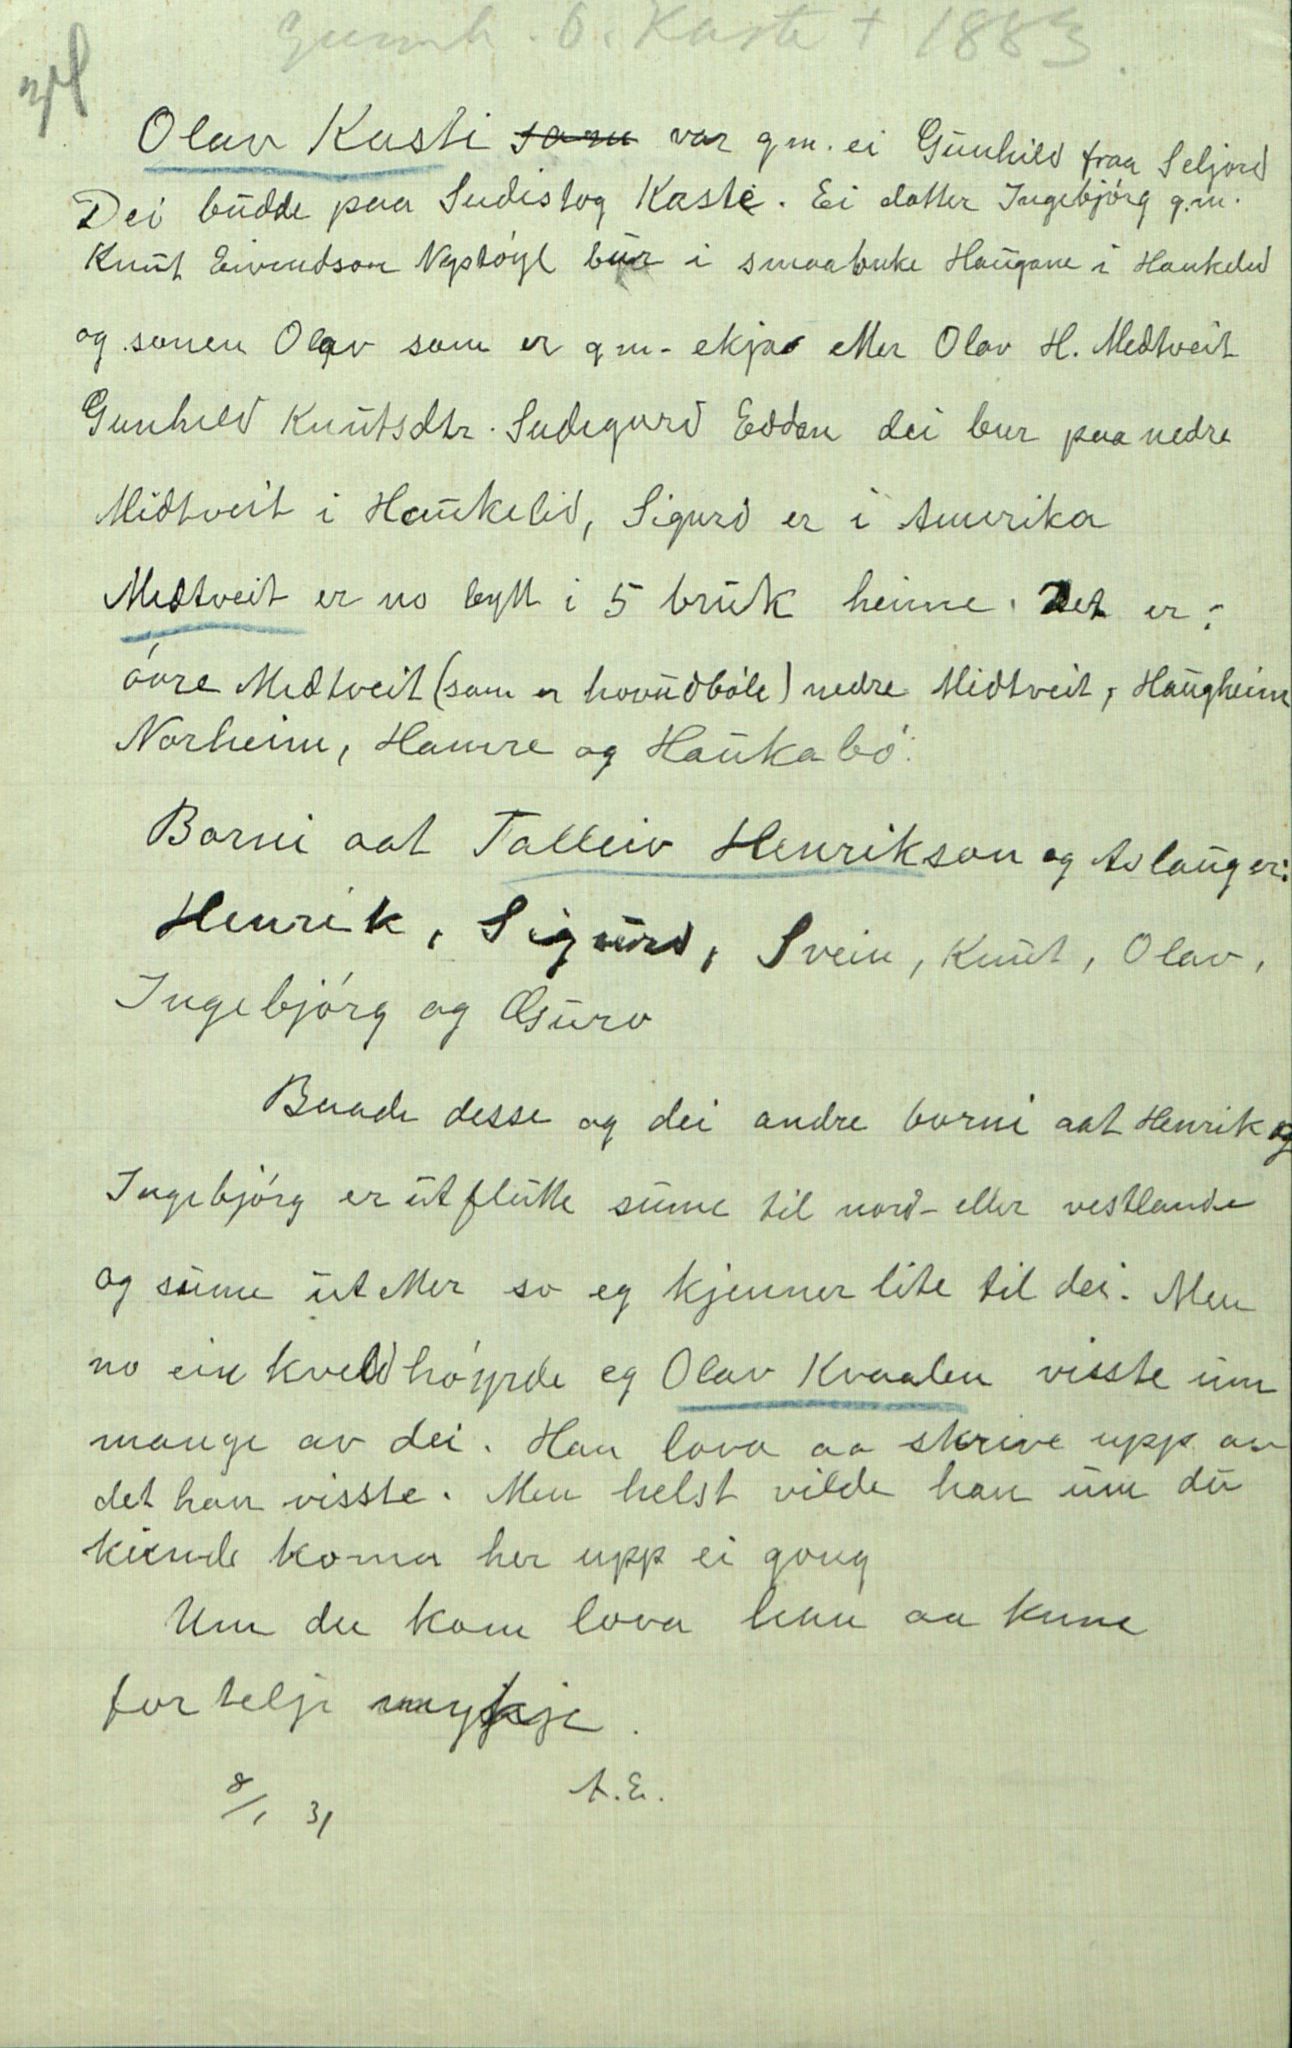 Gunnh. O. Kaste + 1883.
Olav Kasti som var g.m. ei Gunhild fraa Seljord
Dei budde paa Sudistog Kasti. Ei datter Ingebjórg g.m.
Knut Eivendson Nystóyl bur i smaabruke Haugane i Haukelid
og sonen Olav som er g.m. ekja etter Olav H. Medtveit
Gunhild Knutsdtr. Sudegard Edden dei bur paa nedre
Midtveit i Haukelid, Sigurd er i Amerika
Medtveit er no bytt i 5 bruk heime. Det er:
óvre Medtveit (som er hovudbóle) nedre Midtveit, Haugheim
Norheim, Hamre og Haukabó.
Borni aat Talleiv Henrikson og Aslaug er:
Henrik, Sigurd, Svein, Knut, Olav,
Ingebjórg og Gsurv
Baade desse og dei andre borni aat Henrik og
Ingebjórg er utflutte sume til nord- eller vestlande
og sume ut etter so eg kjenner lite til dei. Men
no ein kveld hóyrde eg Olav Kvaalen visste um
mange av dei. Han lova aa skrive upp av
det han visste. Men helst vilde han um du
kunde koma her upp ei gong
Um du kom lova han aa kune
fortelje mykje.
8/1 31 A.E.